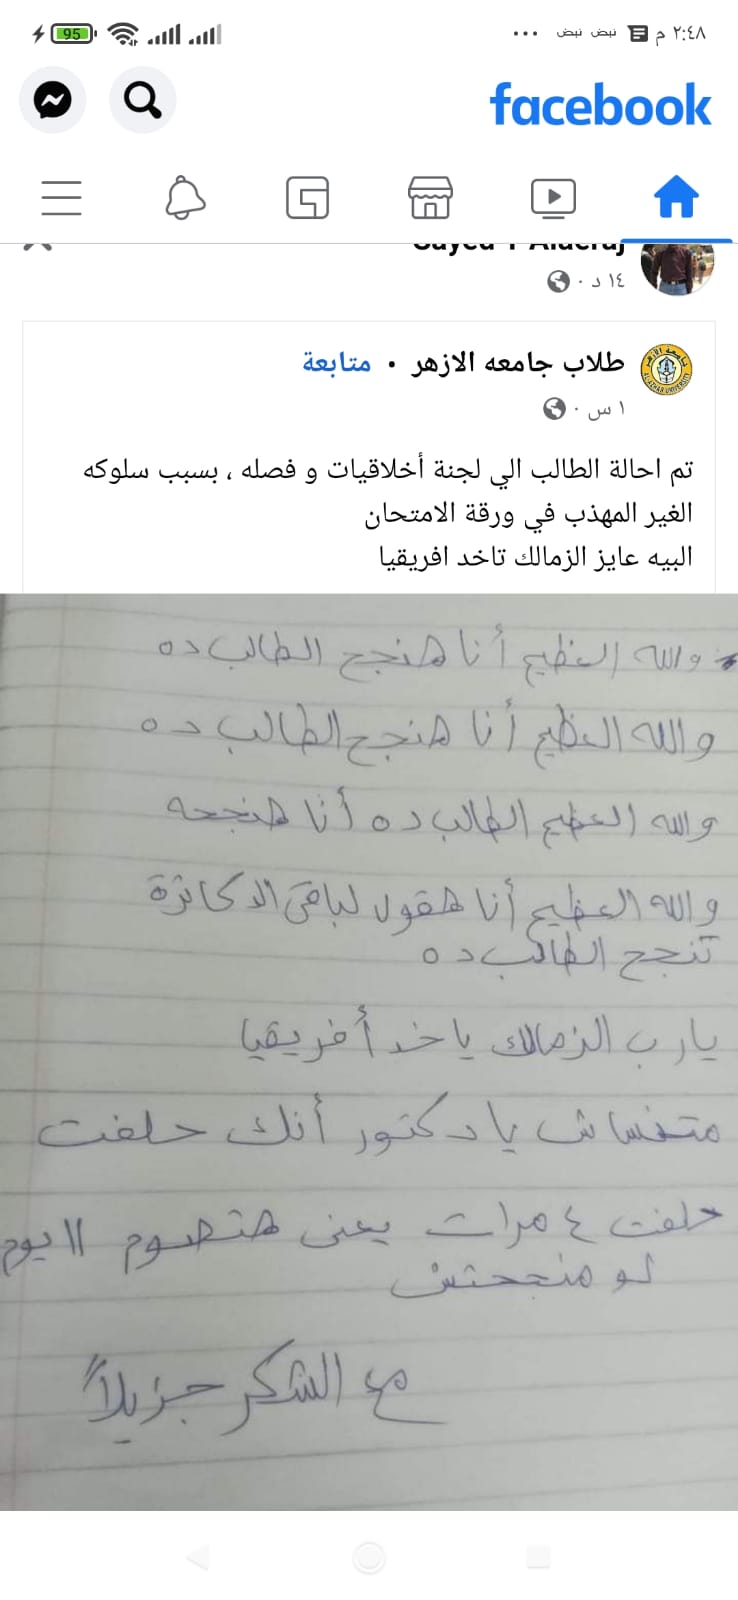 95
نبض نبض
٢:٤٨ م
facebook
١٤ د
طلاب جامعه الازهر • متابعة
١ س
تم احالة الطالب الي لجنة أخلاقيات و فصله ، بسبب سلوكه
الغير المهذب في ورقة الامتحان
البيه عايز الزمالك تاخد افريقيا
والله العظيم أنا هنجح الطالب ده
والله العظيم أنا هنجح الطالب ده
والله العظيم الطالب ده أنا هنجحه
والله العظيم أنا هقول لباقى الدكاترة
تنجح الطالب ده
يارب الزمالك ياخد أفريقيا
متنساش يا دكتور أنك حلفت
حلفت ٤ مرات يعنى هتصوم ١١ يوم
لو منجحتش
مع الشكر جزيلاً